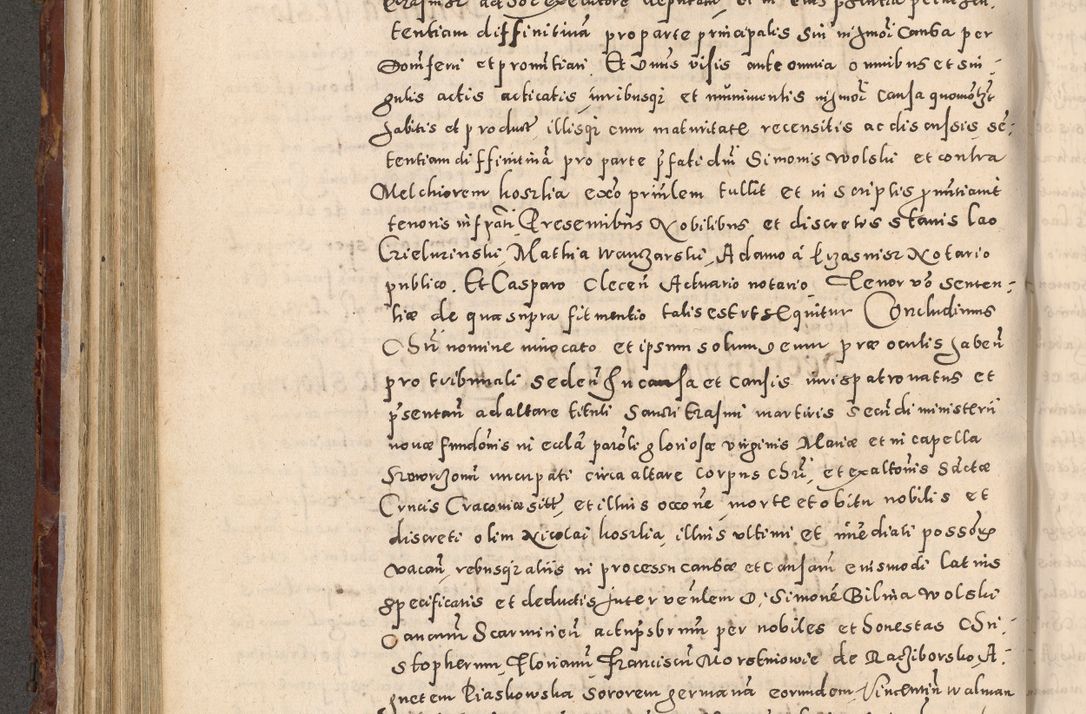 tentiam diffinitivã pro parte principalis sui in hmõi causa per
Domferri et promũtiari Et Unus visis ante omnia omnibus et sin-
gulis actis acticatis, iuribusqz et munimentis in hmõi causa quomõlzt
habitis et product, illisqz cum maturitate recensitis ac discussis sẽ-
tentiam diffinitiuã pro parte pfati dnĩ Simonis wolski et contra
Melchiorem koszlia exõ priũlem tullit et in scriptis pmũtiauit
tenoris infpãti Presentibus Nobilibus et discretis Stanislao
Crielurinski, Mathia wanzarski, Adamo á krzasnisz Notario
publico. Et Casparo Clecen Actuario notario Tenor võ senten-
tiæ de qua supra fit mentio talis est et sequitur Concludimus
Chrĩ nomine inuocato et ipsum solum deum præ oculis haben̄
pro tribunali seden̄ In causa et causis iurispatronatus et
psentan̄ ad altare tituli Sancti Erasmi martiris secũdi ministerii
nouæ fundõnis in ecclã parõli gloriosæ virginis Mariæ et in capella
nuncupati circa altare Corpus Chrĩ, et exaltõnis Sãctæ
Crucis Cracouiæ sitt, et illius occõne, morte et obitu nobilis et
discreti olim Nicolai koszlia, illius ultimi et imẽdiati possõrz
vacan̄, rebusqz aliis in processu causæ et causarũ eiusmodi latius
specificatis et deductis inter venlem D, Simonẽ Bilina wolski
Cancnũ Scarmirien̄ actu psbrmũ per nobiles et honestas Chri-
stopherum, Florianũ Franciscũ Morstiniowie de Raciborsko, A-
gnetem Piaskowska sororem germanã eorumdem Vincentiũ walman